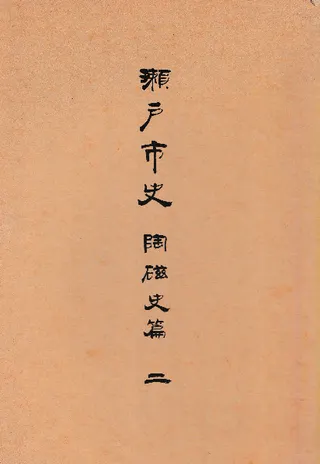 瀬戸市史 陶磁史篇 二